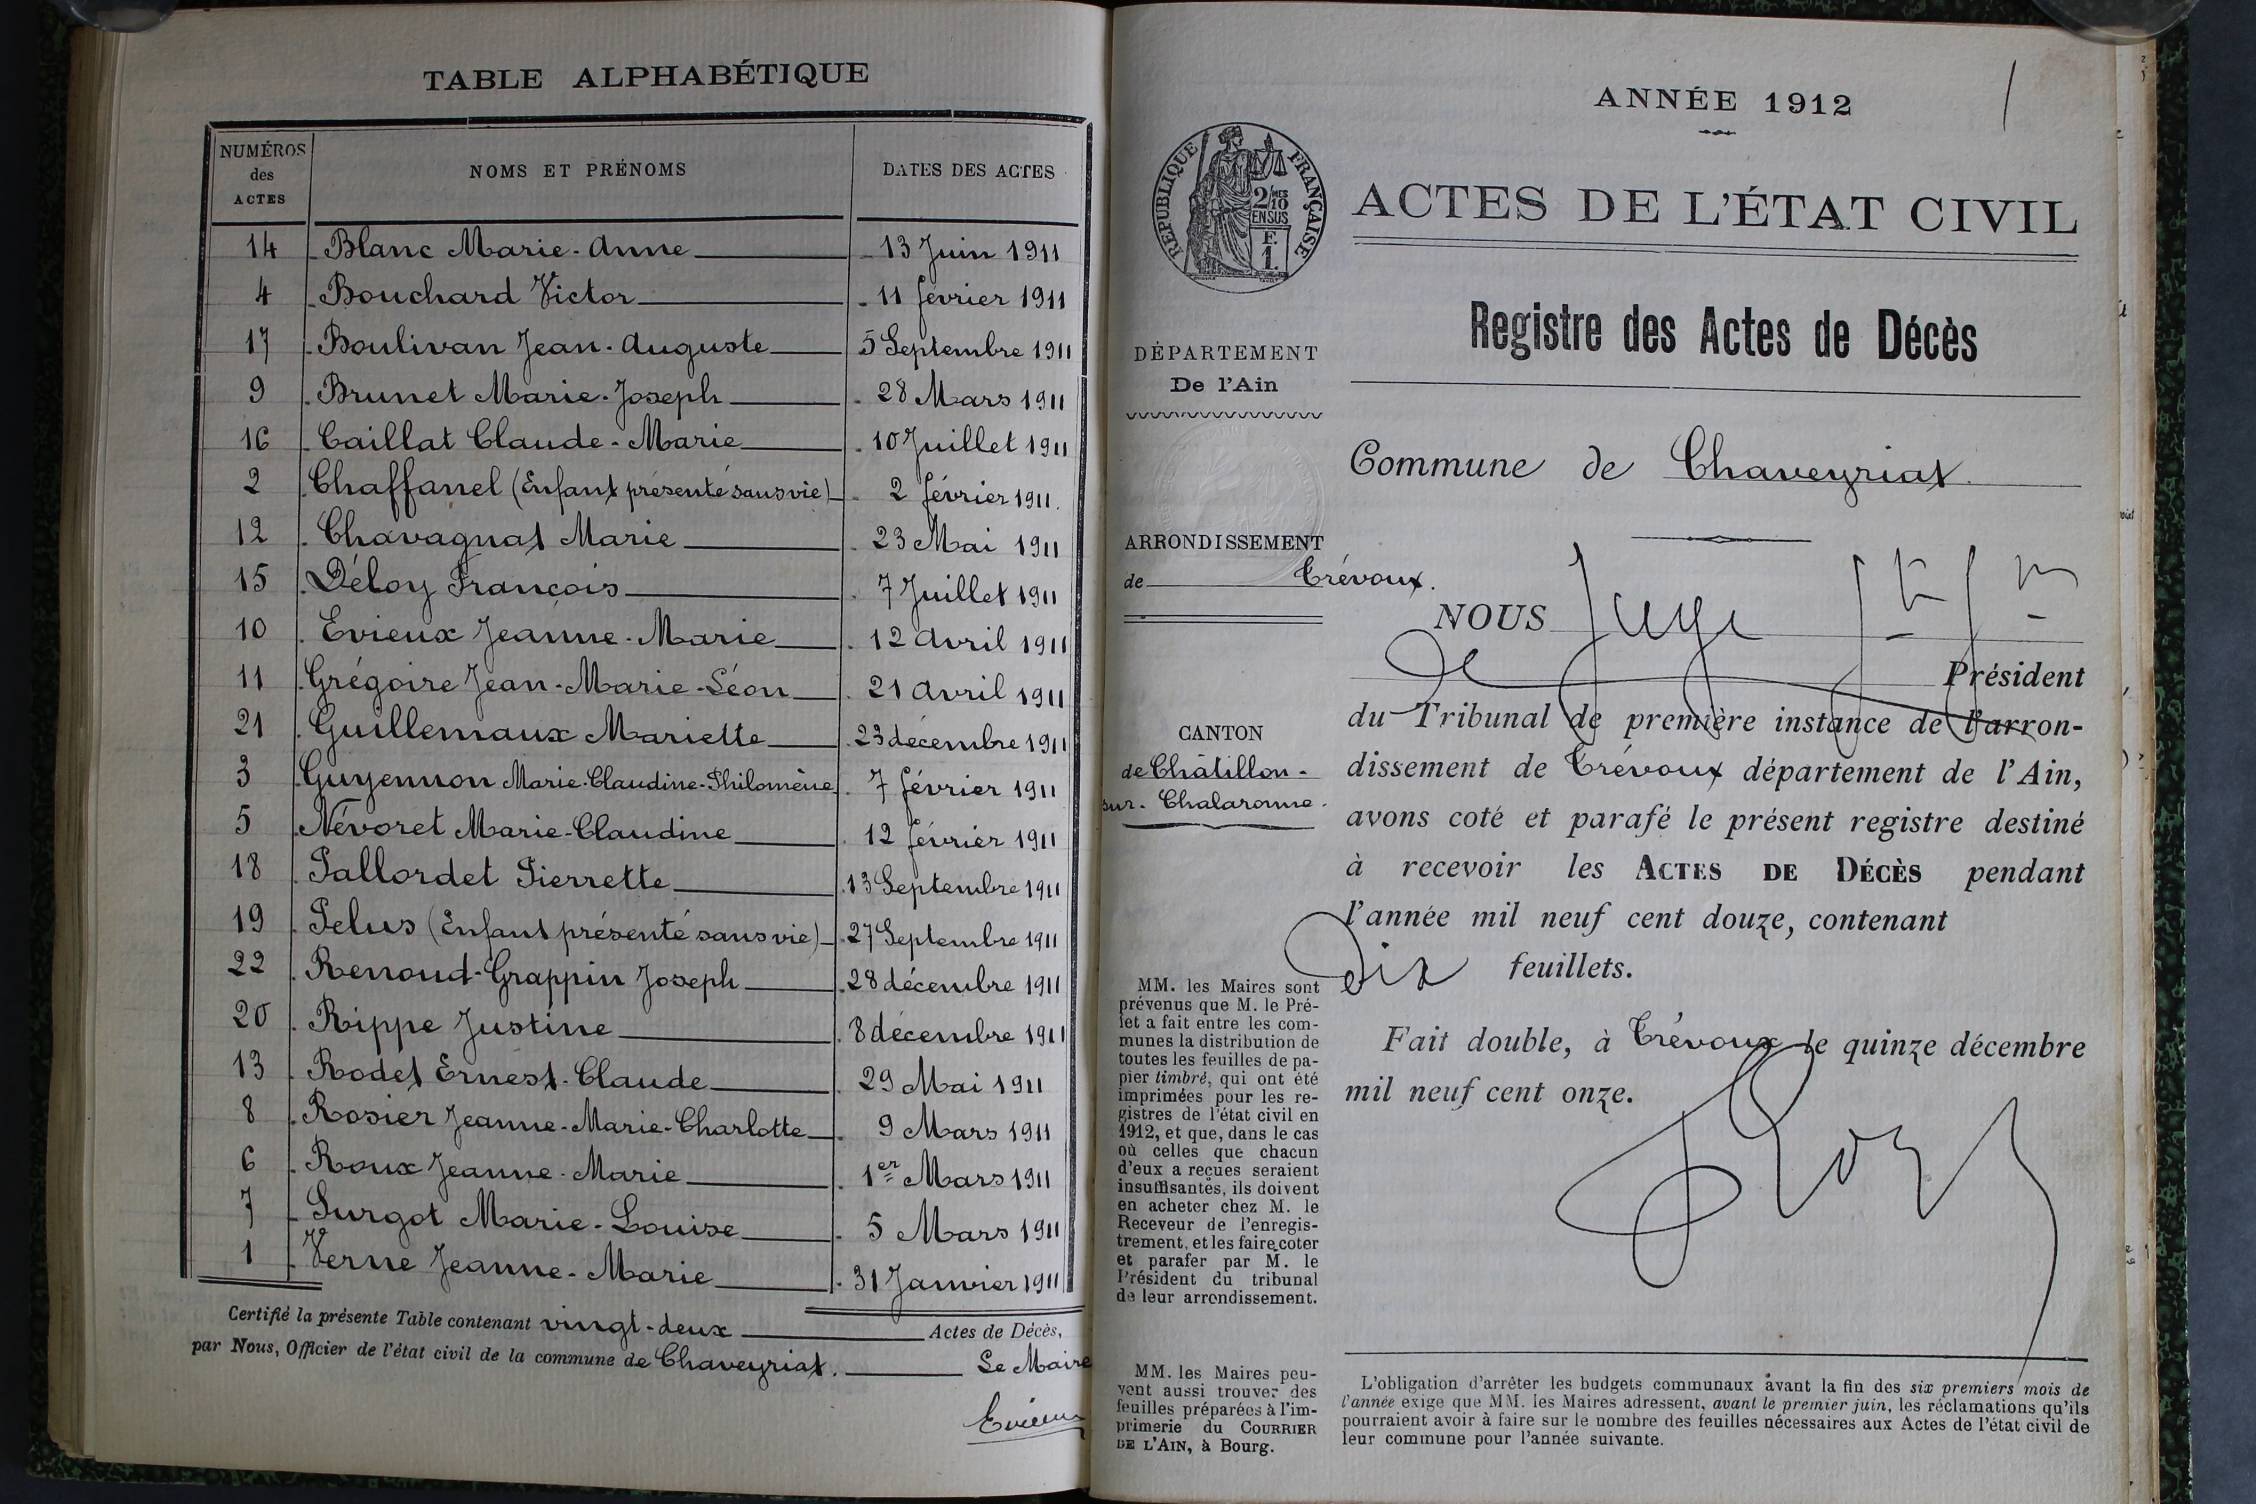 TABLE ALPHABÉTIQUE
NUMÉROS des ACTES NOMS ET PRÉNOMS DATES DES ACTES
14 Blanc Marie-Anne 13 Juin 1911
4 Bouchard Victor 11 février 1911
17 Boulivan Jean-Auguste 5 Septembre 1911
9 Brunet Marie-Joseph 28 Mars 1911
16 Caillat Claude-Marie 10 Juillet 1911
2 Chaffanel (Enfant présenté sans vie) 2 février 1911.
12 Chavagnat Marie 23 Mai 1911
15 Déloy François 7 Juillet 1911
10 Evieux Jeanne-Marie 12 Avril 1911
11 Grégoire Jean-Marie-Léon 21 Avril 1911
21 Guillemaux Mariette 23 décembre 1911
3 Guyennon Marie-Claudine-Philomène 7 février 1911
5 Névoret Marie-Claudine 12 février 1911
18 Pallordet Pierrette 13 Septembre 1911
19 Pelus (Enfant présenté sans vie) 27 Septembre 1911
22 Renoud-Grappin Joseph 28 décembre 1911
20 Rippe Justine 8 décembre 1911
13 Rodet Ernest-Claude 29 Mai 1911
8 Rosier Jeanne-Marie-Charlotte 9 Mars 1911
6 Roux Jeanne-Marie 1er Mars 1911
7 Surgot Marie-Louise 5 Mars 1911
1 Verne Jeanne-Marie 31 Janvier 1911
Certifié la présente Table contenant vingt-deux Actes de Décès,
par Nous, Officier de l'état civil de la commune de Chaveyriat. Le Maire
Evieux
ANNÉE 1912
1
RÉPUBLIQUE FRANÇAISE
2/10 MES
EN SUS
F.
1.
ACTES DE L'ÉTAT CIVIL
Registre des Actes de Décès
DÉPARTEMENT
De l'Ain
ARRONDISSEMENT
de Trévoux.
CANTON
de Châtillon-
sur-Chalaronne.
MM. les Maires sont
prévenus que M. le Pré-
fet a fait entre les com-
munes la distribution de
toutes les feuilles de pa-
pier timbré, qui ont été
imprimées pour les re-
gistres de l'état civil en
1912, et que, dans le cas
où celles que chacun
d'eux a reçues seraient
insuffisantes, ils doivent
en acheter chez M. le
Receveur de l'enregis-
trement, et les faire coter
et parafer par M. le
Président du tribunal
de leur arrondissement.
MM. les Maires peu-
vent aussi trouver des
feuilles préparées à l'im-
primerie du COURRIER
DE L'AIN, à Bourg.
Commune de Chaveyriat.
NOUS Juge
Président
du Tribunal de première instance de l'arron-
dissement de Trévoux département de l'Ain,
avons coté et parafé le présent registre destiné
à recevoir les ACTES DE DÉCÈS pendant
l'année mil neuf cent douze, contenant
Dix feuillets.
Fait double, à Trévoux le quinze décembre
mil neuf cent onze.
L'obligation d'arrêter les budgets communaux avant la fin des six premiers mois de
l'année exige que MM. les Maires adressent, avant le premier juin, les réclamations qu'ils
pourraient avoir à faire sur le nombre des feuilles nécessaires aux Actes de l'état civil de
leur commune pour l'année suivante.